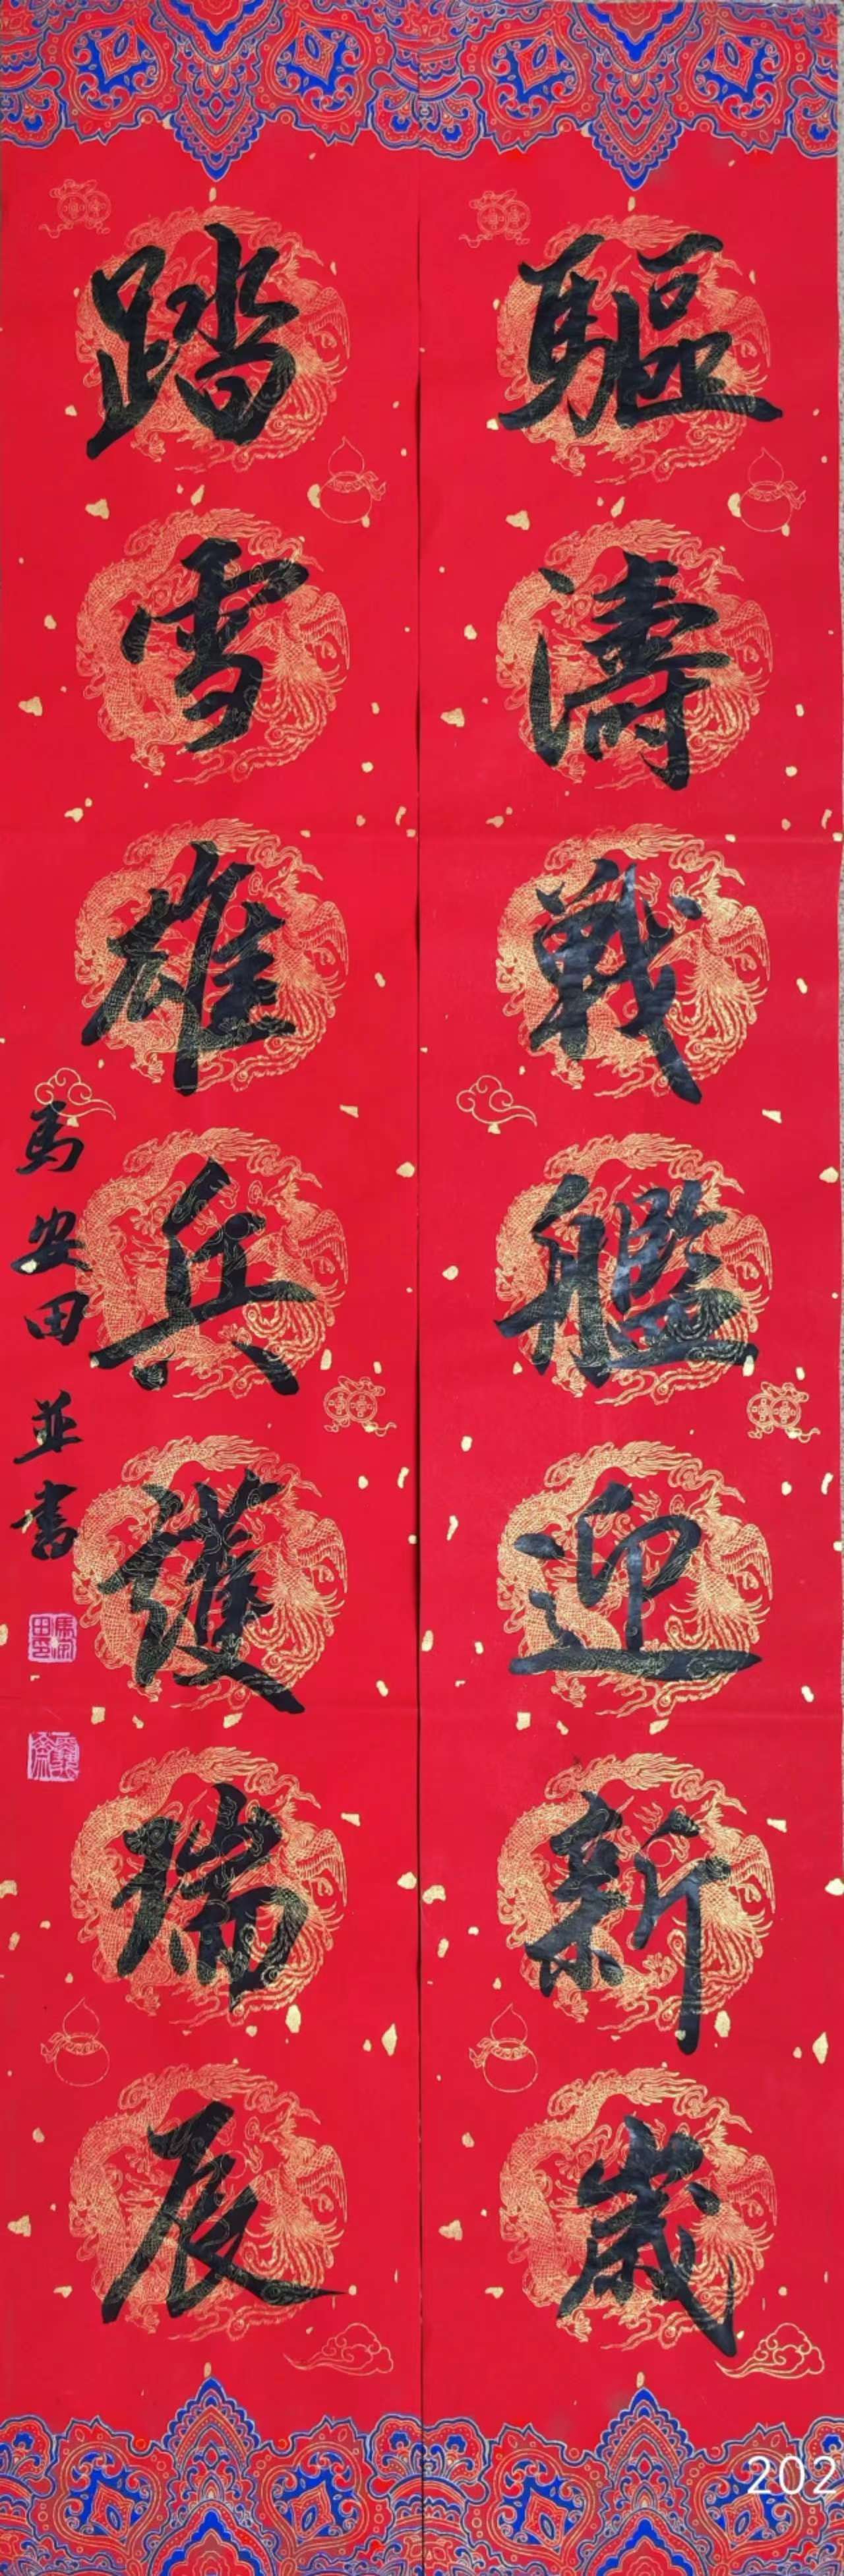 驅濤戰艦迎新歲
踏雪雄兵護瑞辰
馬安田並書
馬安田印
202